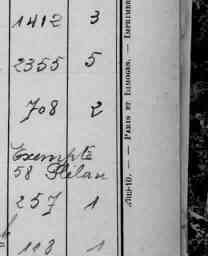 1412 3
2355 5
708 2
Exempte
58 Plélan
257 1
118 1
— PARIS ET LIMOGES. — IMPRIMER